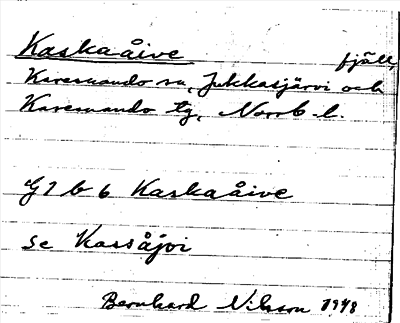 Kaskaåive fjäll,
Karesuando sn, Jukkasjärvi och
Karesuando tg, Norrb. l.
G7b6 Kaskaåive
se Kassåjvi
Bernhard Nilsson 1948